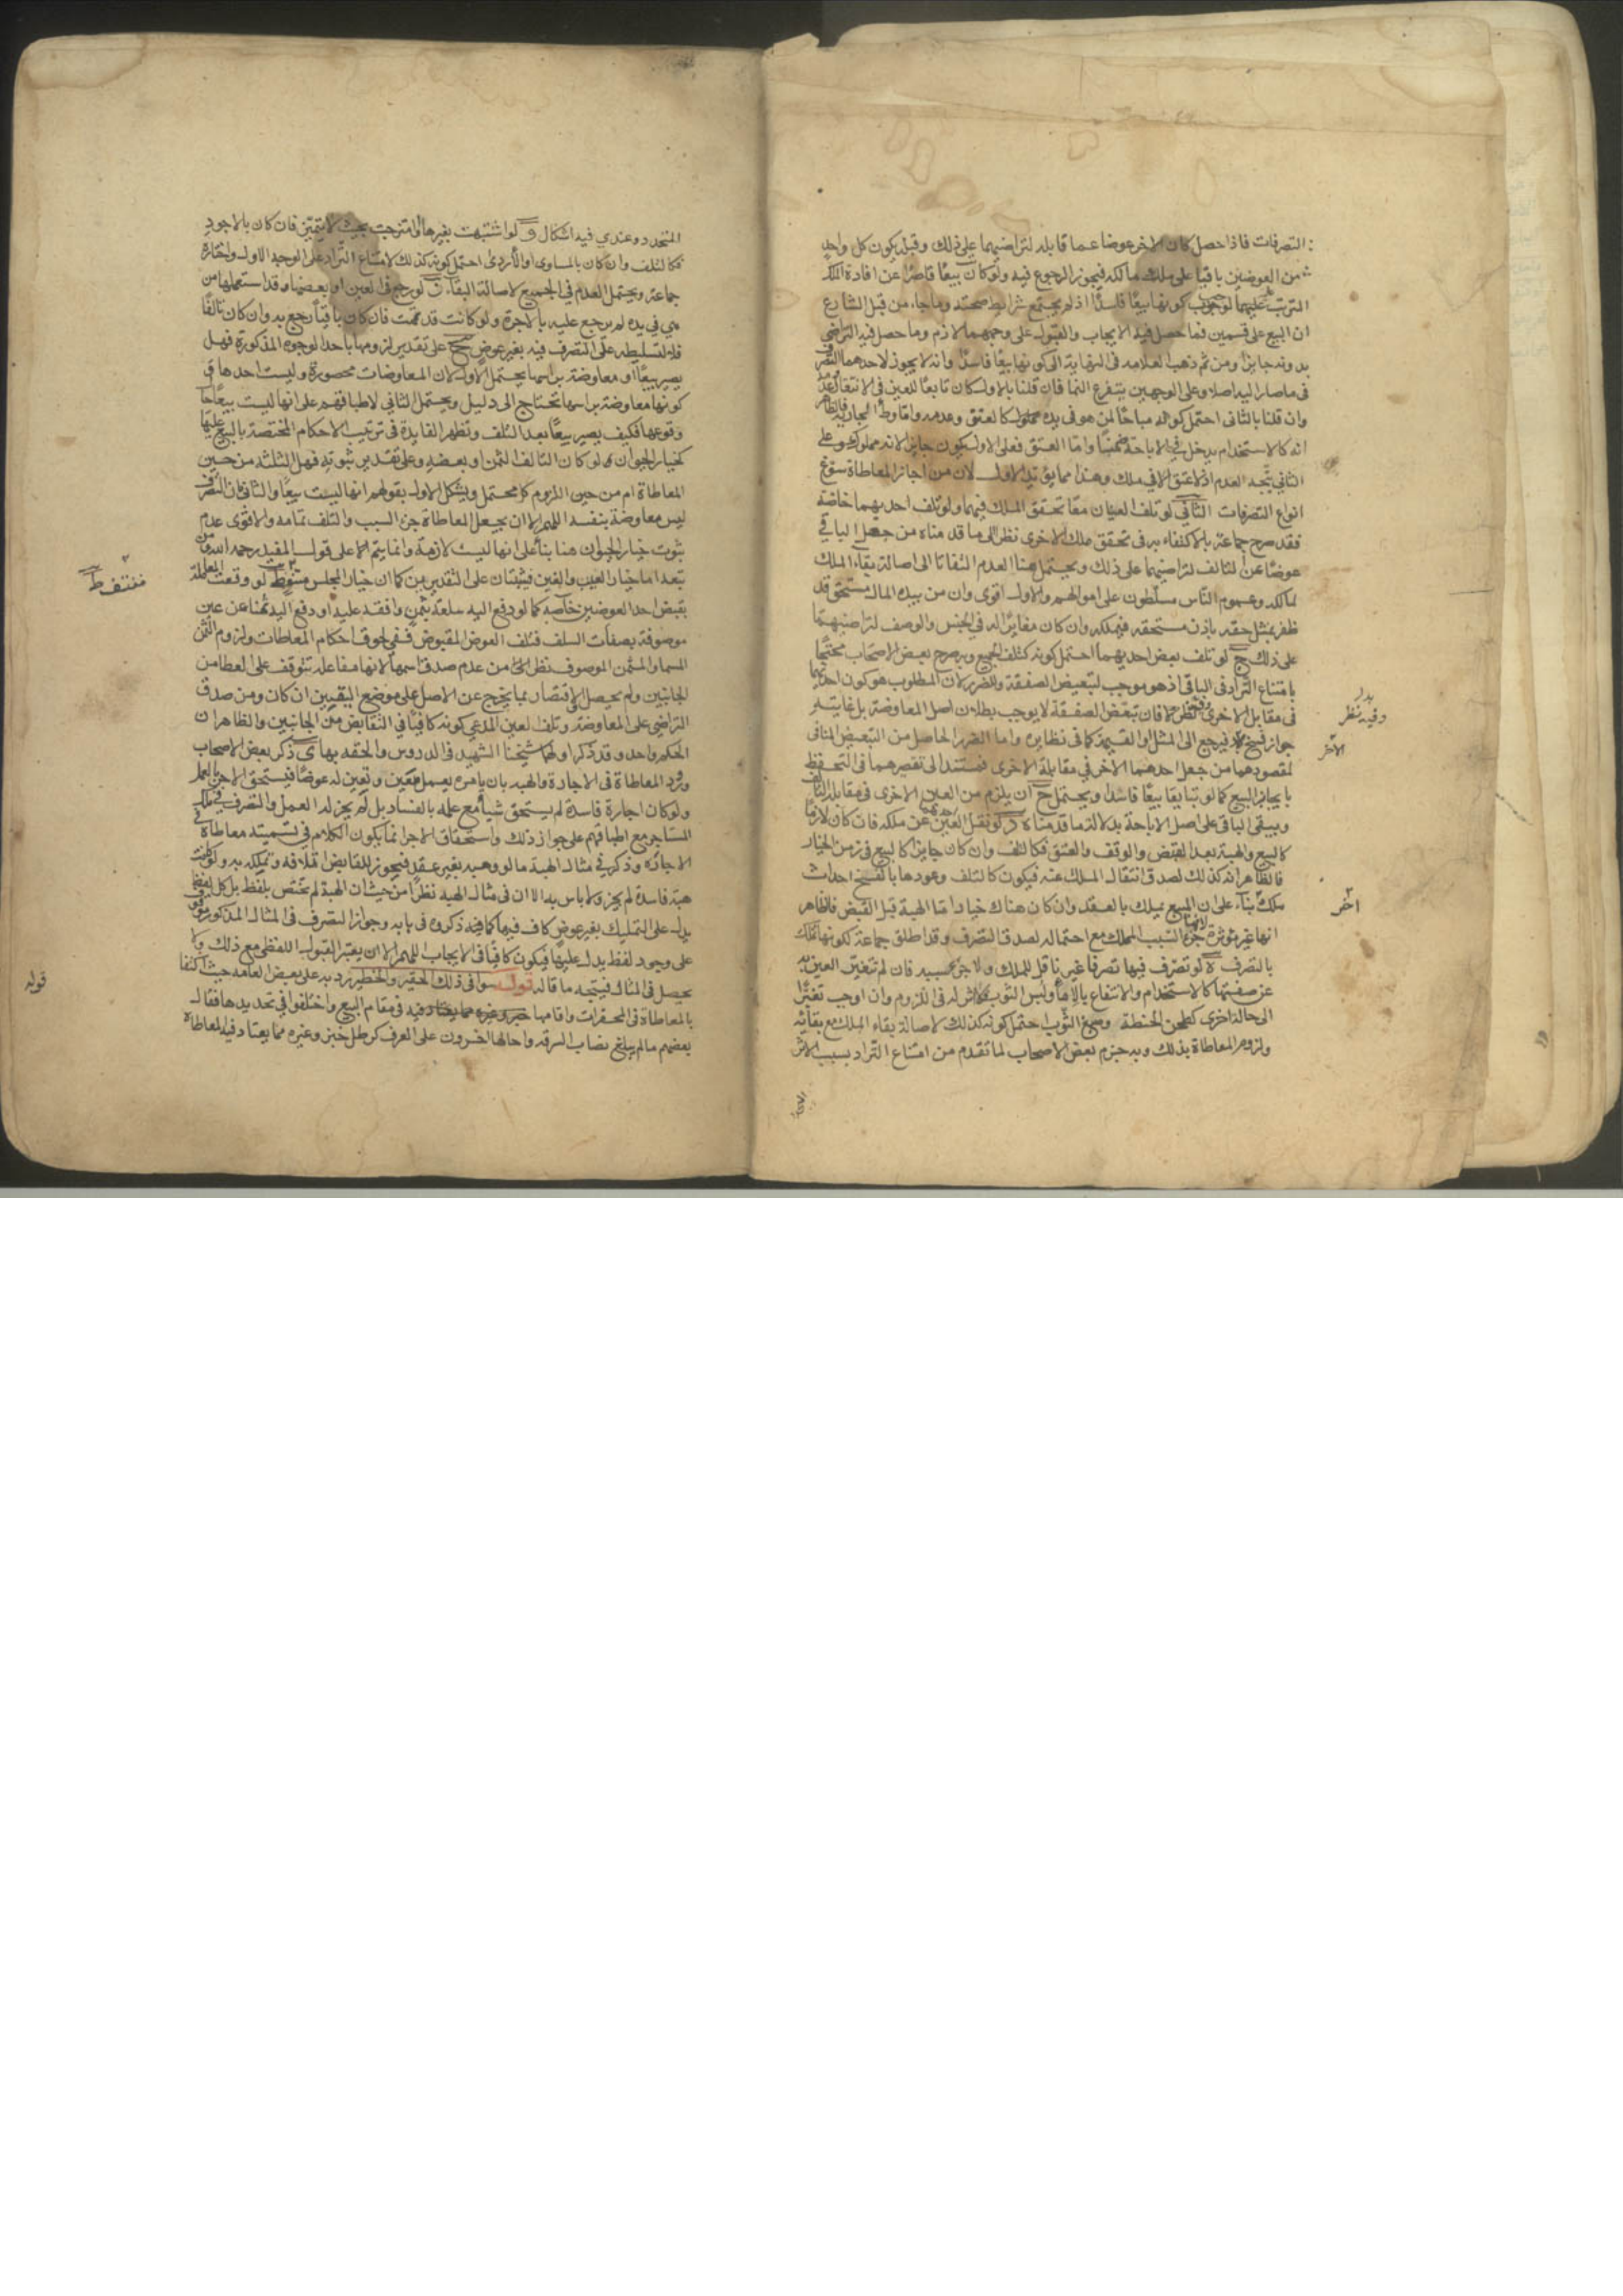 التصرفات فاذا حصل كان الاخر عوضا عما قابله لتراضيهما على ذلك وقبله يكون كل واحد
من العوضين باقيا على ملك مالكه فيجوز الرجوع فيه ولو كان بيعا قاصرا عن افادة الملك
المترتب عليهما لوجب كونها بيعا فاسدا اذ لم يجتمع شرايط صحته وما جاء من قبل الشارع
ان البيع على قسمين فما حصل فيه الايجاب والقبول على وجههما لازم وما حصل فيه التراضي
بدونه جايز ومن ثم ذهب العلامه فى النهاية الى كونها بيعا فاسدا وانه لا يجوز لاحدهما التصرف
فى ما صار اليه اصلا وعلى الوجهين يتفرع النما فان قلنا بالاول كان تابعا للعين فى الانتقال وعدمه
وان قلنا بالثانى احتمل كونه مباحا لمن هو فى يده كالعتق وعدمه واما وطء الجارية فالظاهر
انه كالاستخدام يدخل في الاباحة ضمنا واما العتق فعلى الاول يكون جايزا لانه مملوك وعلى
الثاني يتجه العدم اذ لا عتق الا في ملك وهذا مما يؤيد الاول لان من اجاز المعاطاة سوغ
انواع التصرفات الثاني لو تلف العينان معا تحقق الملك فيهما ولو تلف احديهما خاصة
فقد صرح جماعة بالاكتفاء به فى تحقق ملك الاخرى نظرا الى ما قدمناه من جعل الباقي
عوضا عن التالف لتراضيهما على ذلك ويحتمل هنا العدم التفاتا الى اصالة بقاء الملك
لمالكه وعموم الناس مسلطون على اموالهم والاول اقوى وان من بيده المال مستحق قد
ظفر بمثل حقه باذن مستحقه فيملكه وان كان مغايرا له في الجنس والوصف لتراضيهما
على ذلك ج لو تلف بعض احديهما احتمل كونه كتلف الجميع وبه صرح بعض الاصحاب محتجا
بامتناع التراد فى الباقى اذ هو موجب لتبعيض الصفقة وللضرر لان المطلوب هو كون احديهما
فى مقابل الاخرى وفيه نظر فان تبعض الصفقة لا يوجب بطلان اصل المعاوضة بل غايته
جواز فسخ فيرجع الى المثل او القيمة كما فى نظايره واما الضرر الحاصل من التبعيض المنافى
لمقصودهما من جعل احدهما الاخر في مقابلة الاخرى فمستندا لى تقصيرهما فى التحفظ
بايجاب البيع كما لو تبايعا بيعا فاسدا ويحتمل ح ان يلزم من العين الاخرى فى مقابلة التالف
ويبقى الباقى على اصل الاباحة بدلالة ما قدمناه د لو نقل احدهما العين عن ملكه فان كان لازما
كالبيع والهبة بعد القبض والوقف والعتق فكالتلف وان كان جايزا كالبيع فى زمن الخيار
فالظاهر انه كذلك لصدق انتقال الملك عنه فيكون كالتلف وعودها بالفسخ احداث
ملك بناء على ان المبيع يملك بالعقد وان كان هناك خيار اما الهبة قبل القبض فالظاهر
انها غير مؤثرة لانها جزء السبب المملك مع احتماله لصدق التصرف وقد اطلق جماعة كونها تملك
بالتصرف ه لو تصرف فيها تصرفا غير ناقل للملك ولا جزء سببه فان لم تتغير العين به
عن صفتها كالاستخدام والانتفاع بالاناء ولبس الثوب فلا اثر له فى اللزوم وان اوجب تغيرا
الى حالة اخرى كطحن الحنطة وصبغ الثوب احتمل كونه كذلك لاصالة بقاء الملك مع بقائه
ولزوم المعاطاة بذلك وبه جزم بعض الاصحاب لما تقدم من امتناع التراد بسبب الاثر
بدل
وفيه نظر
الاخر
اخر
المتجدد وعندي فيه اشكال و لو اشتبهت بغيرها او امتزجت بحيث لا يتميز فان كان بالاجود
فكالتلف وان كان بالمساوى او الاردى احتمل كونه كذلك لامتناع التراد على الوجه الاول واختاره
جماعة ويحتمل العدم في الجميع لاصالة البقاء ز لو رجع فى العين او بعضها وقد استعملها من
هي في يده لم يرجع عليه بالاجرة ولو كانت قد نمت فان كان باقيا رجع به وان كان تالفا
فلا لتسليطه على التصرف فيه بغير عوض ح على تقدير لزومها باحد الوجوه المذكورة فهل
يصير بيعا او معاوضة براسها يحتمل الاول لان المعاوضات محصورة وليست احدها و
كونها معاوضة براسها تحتاج الى دليل ويحتمل الثاني لاطباقهم على انها ليست بيعا حا
وقوعها فكيف يصير بيعا بعد التلف وتظهر الفايدة فى ترتيب الاحكام المختصة بالبيع عليها
كخيار الحيوان لو كان التالف الثمن او بعضه وعلى تقدير ثبوته فهل الثلثة من حين
المعاطاة ام من حين اللزوم كل محتمل ويشكل الاول بقولهم انها ليست بيعا والثانى بان التصرف
ليس معاوضة بنفسه اللهم الا ان يجعل المعاطاة جزء السبب والتلف تمامه والاقوى عدم
ثبوت خيار الحيوان هنا بناء على انها ليست لازمة وانما يتم الا على قول المفيد رحمه الله ومن
تبعه اما خيار العيب والغبن فيثبتان على التقديرين كما ان خيار المجلس منتف ط لو وقعت المعاملة
بقبض احد العوضين خاصة كما لو دفع اليه سلعة بثمن وافقه عليه او دفع اليه ثمنا عن عين
موصوفة بصفات السلف فتلف العوض المقبوض ففى لحوق احكام المعاطات ولزوم الثمن
المسما والمثمن الموصوف نظر من عدم صدق اسمها لانها مفاعله تتوقف على العطا من
الجانبين ولم يحصل والاقتصار بما يخرج عن الاصل على موضع اليقين ان كان ومن صدق
التراضي على المعاوضة وتلف العين المدعى كونه كافيا في التقابض من الجانبين والظاهر ان
الحكم واحد وقد ذكر اولهما شيخنا الشهيد فى الدروس والحقه بها ى ذكر بعض الاصحاب
ورود المعاطاة فى الاجارة والهبه بان يامره بعمل معين ويعين له عوضا فيستحق الاجر بالعمل
ولو كان اجارة فاسدة لم يستحق شيأ مع علمه بالفساد بل لم يجز له العمل والتصرف في ملك
المستاجر مع اطباقهم على جواز ذلك واستحقاق الاجر انما يكون الكلام في تسميته معاطاة في
الاجاره وذكر في مثال الهبة ما لو وهبه بغير عقد فيجوز للقابض اتلافه وتملكه به ولو كانت
هبة فاسدة لم يجز ولا باس به الا ان فى مثال الهبه نظرا من حيث ان الهبة لم تختص بلفظ بل كل لفظ
يدل على التمليك بغير عوض كاف فيها كما ذكروه فى بابه وجواز التصرف فى المثال المذكور موقوف
على وجود لفظ يدل عليها فيكون كافيا فى الايجاب اللهم الا ان يعتبر القبول اللفظى مع ذلك ولا
يحصل فى المثال فيتجه ما قاله قوله سوا فى ذلك الحقير والخطير رد به على بعض العامه حيث اكتفا
بالمعاطاة فى المحقرات واقامها فيه فى مقام البيع واختلفوا في تحديدها فقال
بعضهم ما لم يبلغ نصاب السرقه واحالها اخرون على العرف كرطل خبز وغيره مما يعتاد فيه المعاطاة
منتف ط
قوله